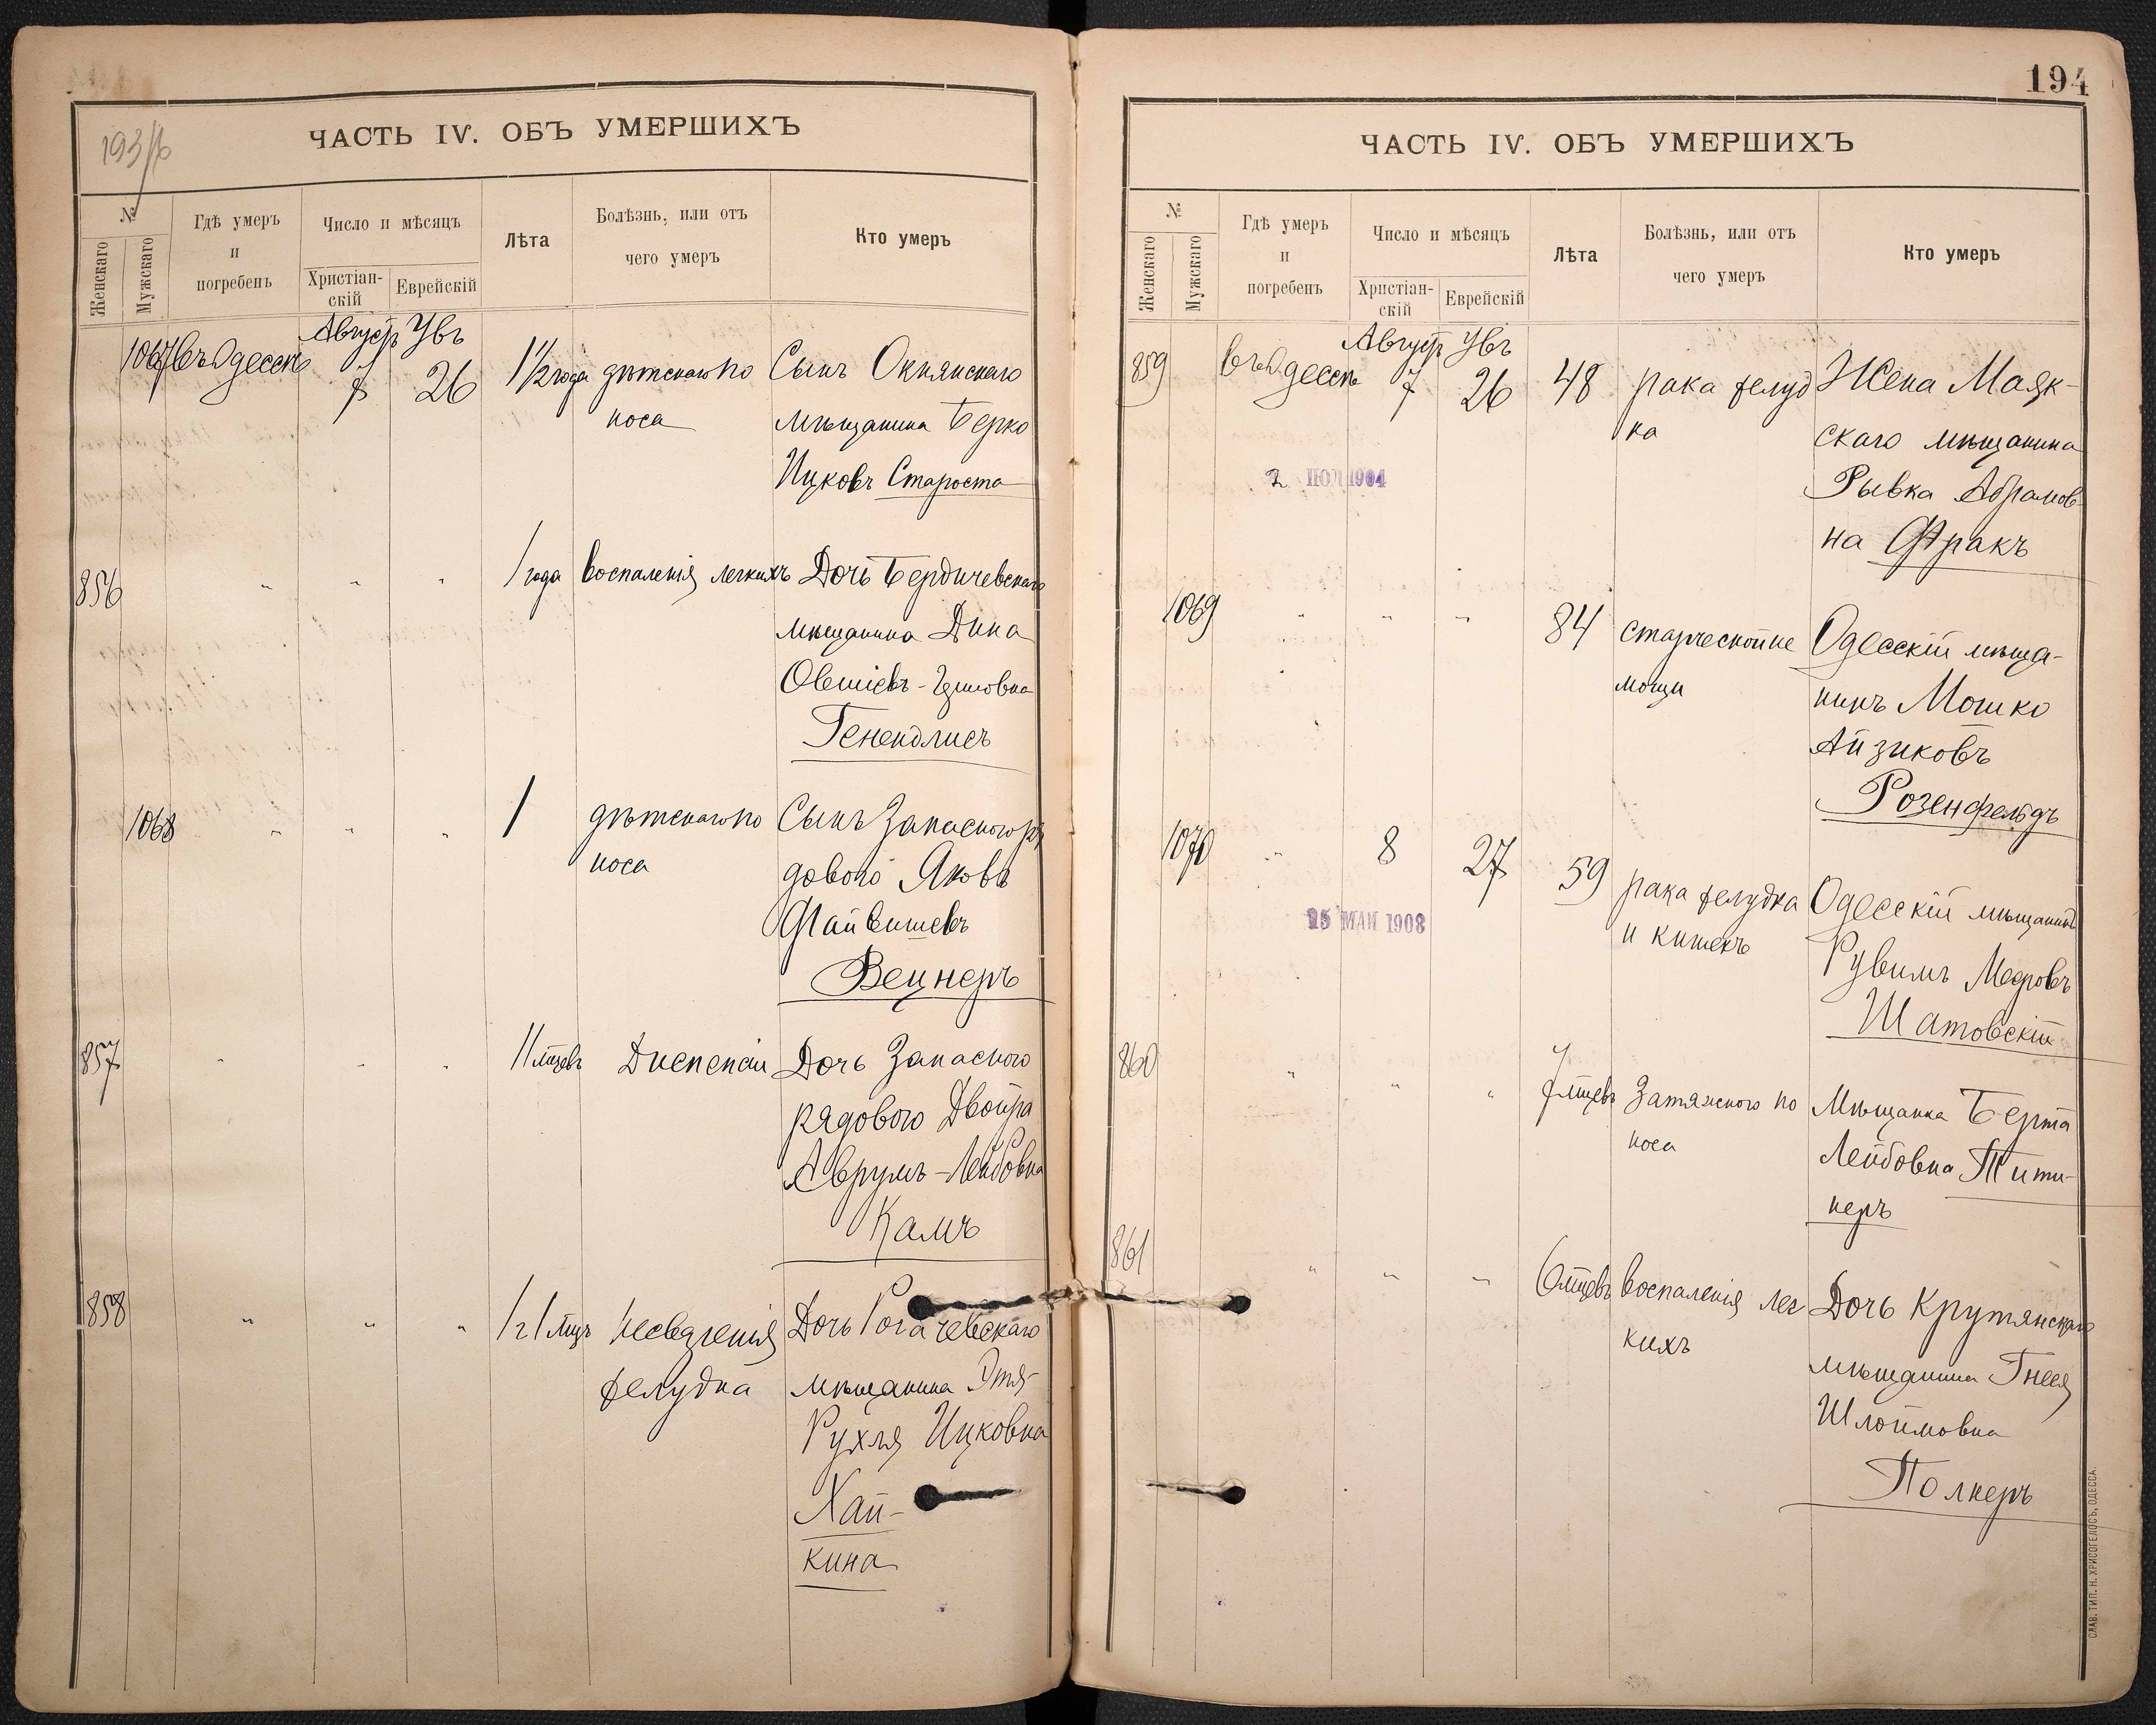 193/б
ЧАСТЬ IV. ОБЪ УМЕРШИХЪ
№
Женскаго
Мужскаго
Гдѣ умеръ
и
погребенъ
Число и мѣсяцъ
Христіан-
скій
Еврейскій
Лѣта
Болѣзнь, или отъ
чего умеръ
Кто умеръ
Август Увъ
1067 въ Одессѣ 7 26 1 1/2 года дѣтскаго по Сынъ Окнянскаго
носа мѣщанина Берко
Ицковъ Староста
856 " " " 1 года воспаленія легкихъ Дочь Бердичевскаго
мѣщанина Дина
Овшіевъ-
Генендлисъ
1068 " " " 1 дѣтскаго по Сынъ Запасного ря
носа дового Яковъ
Файвишевъ
Вецнеръ
857 " " " 11 мцевъ Диспепсіи Дочь Запасного
рядового Двойра
Аврумъ-Лейбовна
Камъ
858 " " " 1 г 1 мцъ Несваренія Дочь Рогачевскаго
желудка мѣщанина Этя-
Рухля Ицковна
Хай-
кина
194
ЧАСТЬ IV. ОБЪ УМЕРШИХЪ
№
Женскаго
Мужскаго
Гдѣ умеръ
и
погребенъ
Число и мѣсяцъ
Христіан-
скій
Еврейскій
Лѣта
Болѣзнь, или отъ
чего умеръ
Кто умеръ
Август Увъ
859 въ Одессѣ 7 26 48 рака желуд Жена Маяк-
ка скаго мѣщанина
2 ІЮЛ 1904 Рывка Абрамов-
на Фракъ
1069 " " " 84 старческой не Одесскій мѣща-
мощи нинъ Мошко
Айзиковъ
Розенфельдъ
1070 " 8 27 59 рака желудка Одесскій мѣщанинъ
25 МАЙ 1908 и кишекъ Рувимъ Меэровъ
Шатовскій
860 " " " 7 мцевъ Затяжного по Мѣщанка Берта
носа Лейбовна Тити-
неръ
861 " " " 6 мцевъ воспаленія лег Дочь Крутянскаго
кихъ мѣщанина Гнеся
Шлоймовна
Полнеръ
СЛАВ. ТИП. Н. ХРИСОГЕЛОСЪ, ОДЕССА.